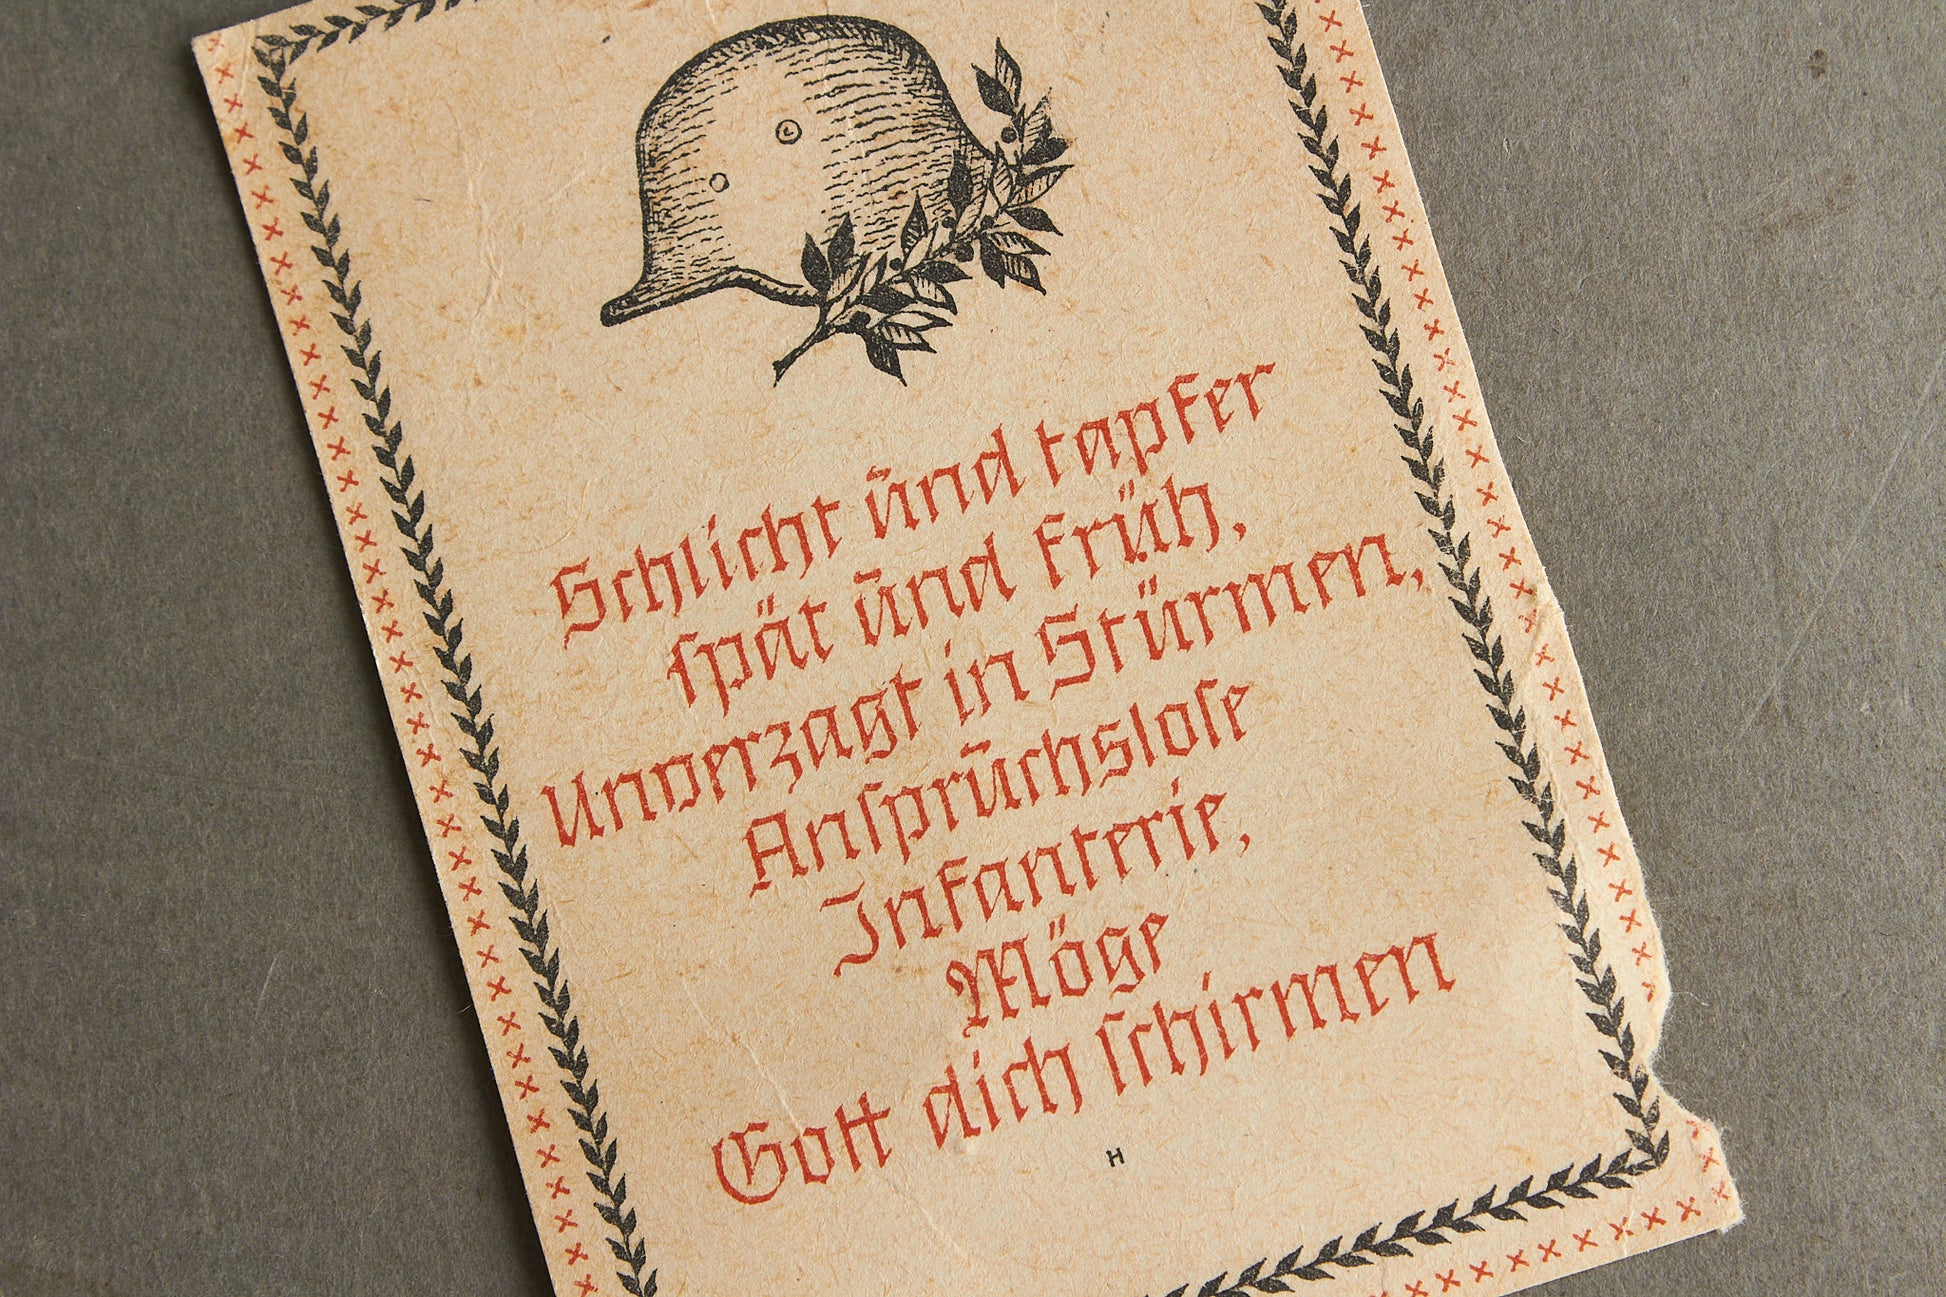 Schlicht ūnd tapfer
ſpät ūnd früh,
Unverzagt in Stürmen,
Anſprūchsloſe
Infanterie,
Möge
Gott dich ſchirmen
H